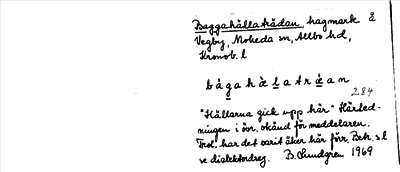 Baggahällaträdan, hagmark å
Vegby, Moheda sn, Allbo hd,
Kronob. l
b a g a h æ l a t r æ a n
284
"Hällarna gick upp här" Härled-
ningen i övr. okänd för meddelaren.
Trol. har det varit åker här förr. Betr. sl
se dialektordreg. B. Sundgren 1969